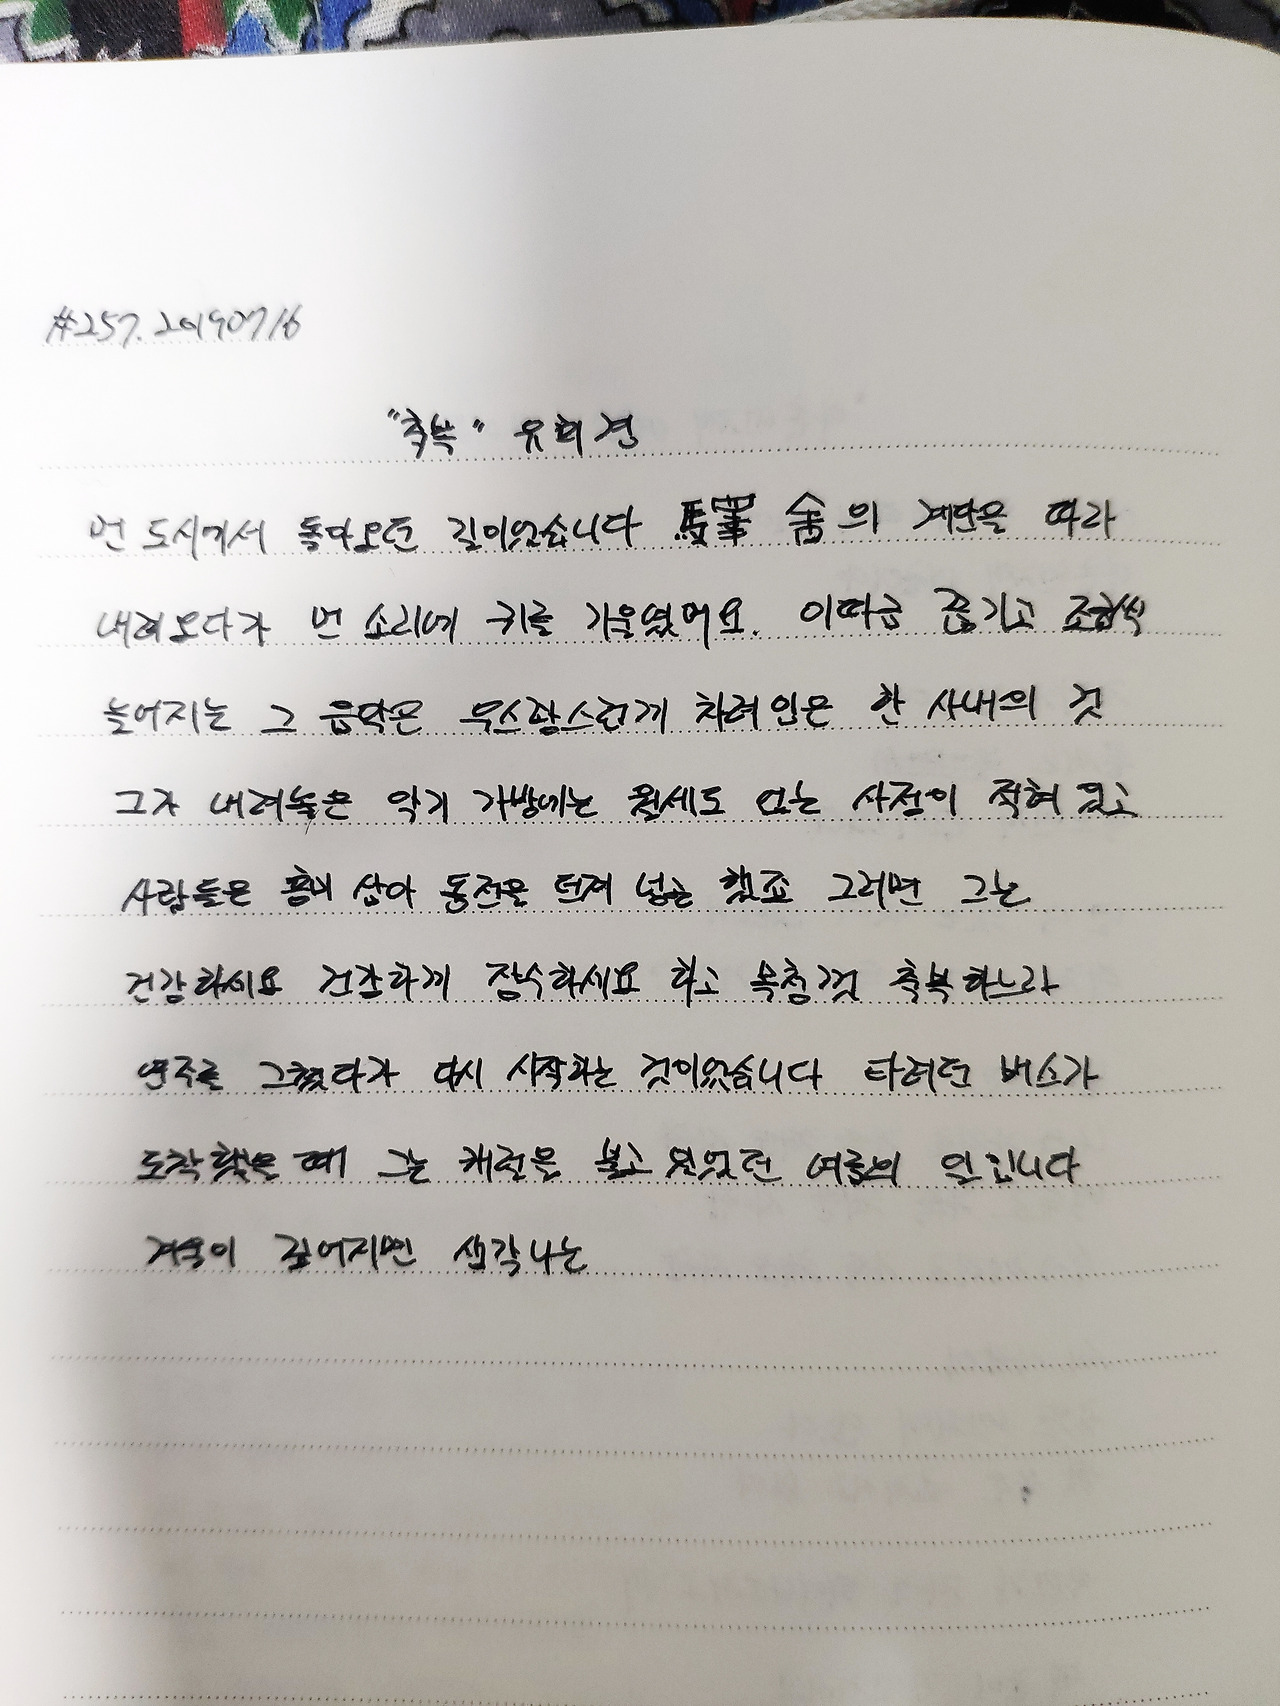 #257. 20190716
"축복" 유희경
먼 도시에서 돌아오던 길이었습니다 驛舍의 계단을 따라
내려오다가 먼 소리에 귀를 기울였어요. 이따금 끊기고 조금씩
늘어지는 그 음악은 우스꽝스럽게 차려입은 한 사내의 것
그가 내려놓은 악기 가방에는 월세도 없는 사정이 적혀 있고
사람들은 흥미 삼아 동전을 던져 넣곤 했죠 그러면 그는
건강하세요 건강하게 장수하세요 하고 목청껏 축복하느라
연주를 그쳤다가 다시 시작하는 것이었습니다 타려던 버스가
도착했을 때 그는 캐럴을 불고 있었던 여름의 일입니다
겨울이 깊어지면 생각나는